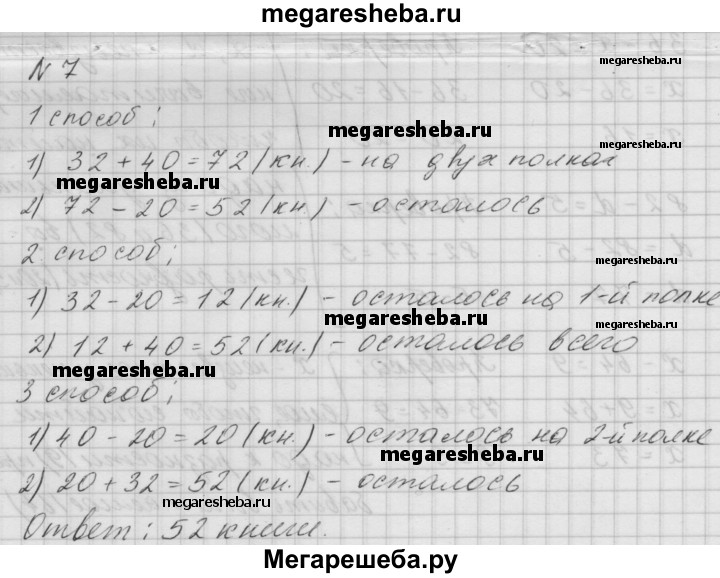 megaresheba.ru
N 7
megaresheba.ru
1 способ;
megaresheba.ru
1) 32 + 40 = 72 (кн.) - на двух полках
megaresheba.ru
2) 72 - 20 = 52 (кн.) - осталось
2 способ;
megaresheba.ru
1) 32 - 20 = 12 (кн.) - осталось на 1-й полке
megaresheba.ru
2) 12 + 40 = 52 (кн.) - осталось всего
megaresheba.ru
3 способ;
1) 40 - 20 = 20 (кн.) - осталось на 2-й полке
megaresheba.ru
2) 20 + 32 = 52 (кн.) - осталось
megaresheba.ru
megaresheba.ru
Ответ: 52 книги.
Мегарешеба.ру